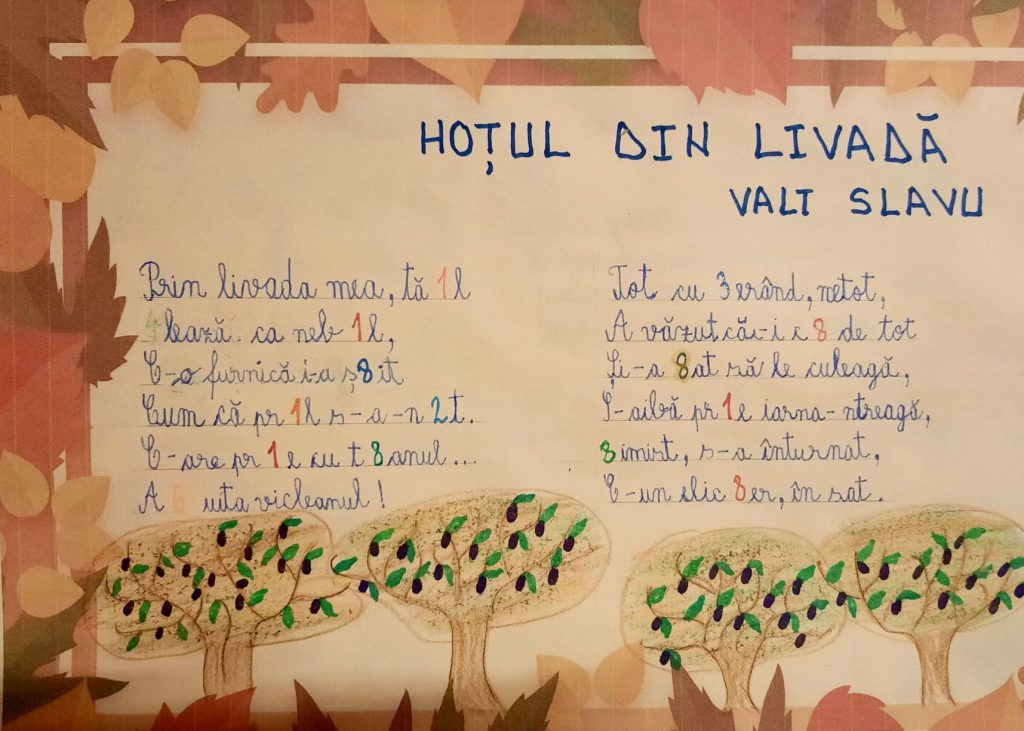 HOȚUL DIN LIVADĂ
VALT SLAVU
Prin livada mea, tă 1l
4 lează ca neb 1l,
C-o furnică i-a ș8it
Cum că pr 1l s-a-n 2t.
C-are pr 1e cu t 8anul...
A 6 uita vicleanul!
Tot cu 3erând, netot,
A văzut că-i c 8 de tot
Și-a 8at să le culeagă,
S-aibă pr 1e iarna-ntreagă,
8imist, s-a înturnat,
C-un slic 8er, în sat.